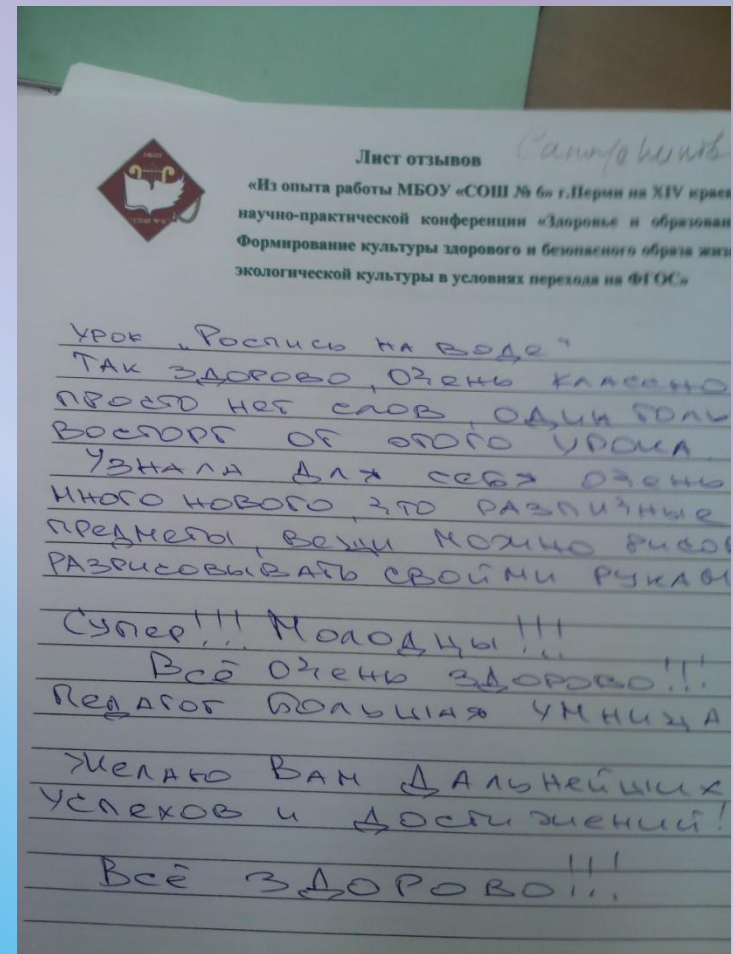 Лист отзывов
«Из опыта работы МБОУ «СОШ № 6» г.Перми на XIV краев
научно-практической конференции «Здоровье и образован
Формирование культуры здорового и безопасного образа жиз
экологической культуры в условиях перехода на ФГОС»
МБОУ
"СОШ № 6"
УРОК „Роспись НА ВОДЕ“
ТАК ЗДОРОВО, ОЧЕНЬ КЛАССНО
ПРОСТО НЕТ СЛОВ, ОДИН ТОЛЬ
ВОСТОРГ ОТ ЭТОГО УРОКА.
УЗНАЛА ДЛЯ СЕБЯ ОЧЕНЬ
МНОГО НОВОГО, ЧТО РАЗЛИЧНЫЕ
ПРЕДМЕТЫ, ВЕЩИ МОЖНО РИСОВ
РАЗРИСОВЫВАТЬ СВОЙМИ РУКАМ
Супер!!! Молодцы!!!
Всё ОЧЕНЬ ЗДОРОВО!!!
ПЕДАГОГ БОЛЬШАЯ УМНИЦА
ЖЕЛАЮ ВАМ ДАЛЬНЕЙШИХ
УСПЕХОВ И ДОСТИЖЕНИЙ!
ВСЁ ЗДОРОВО!!!